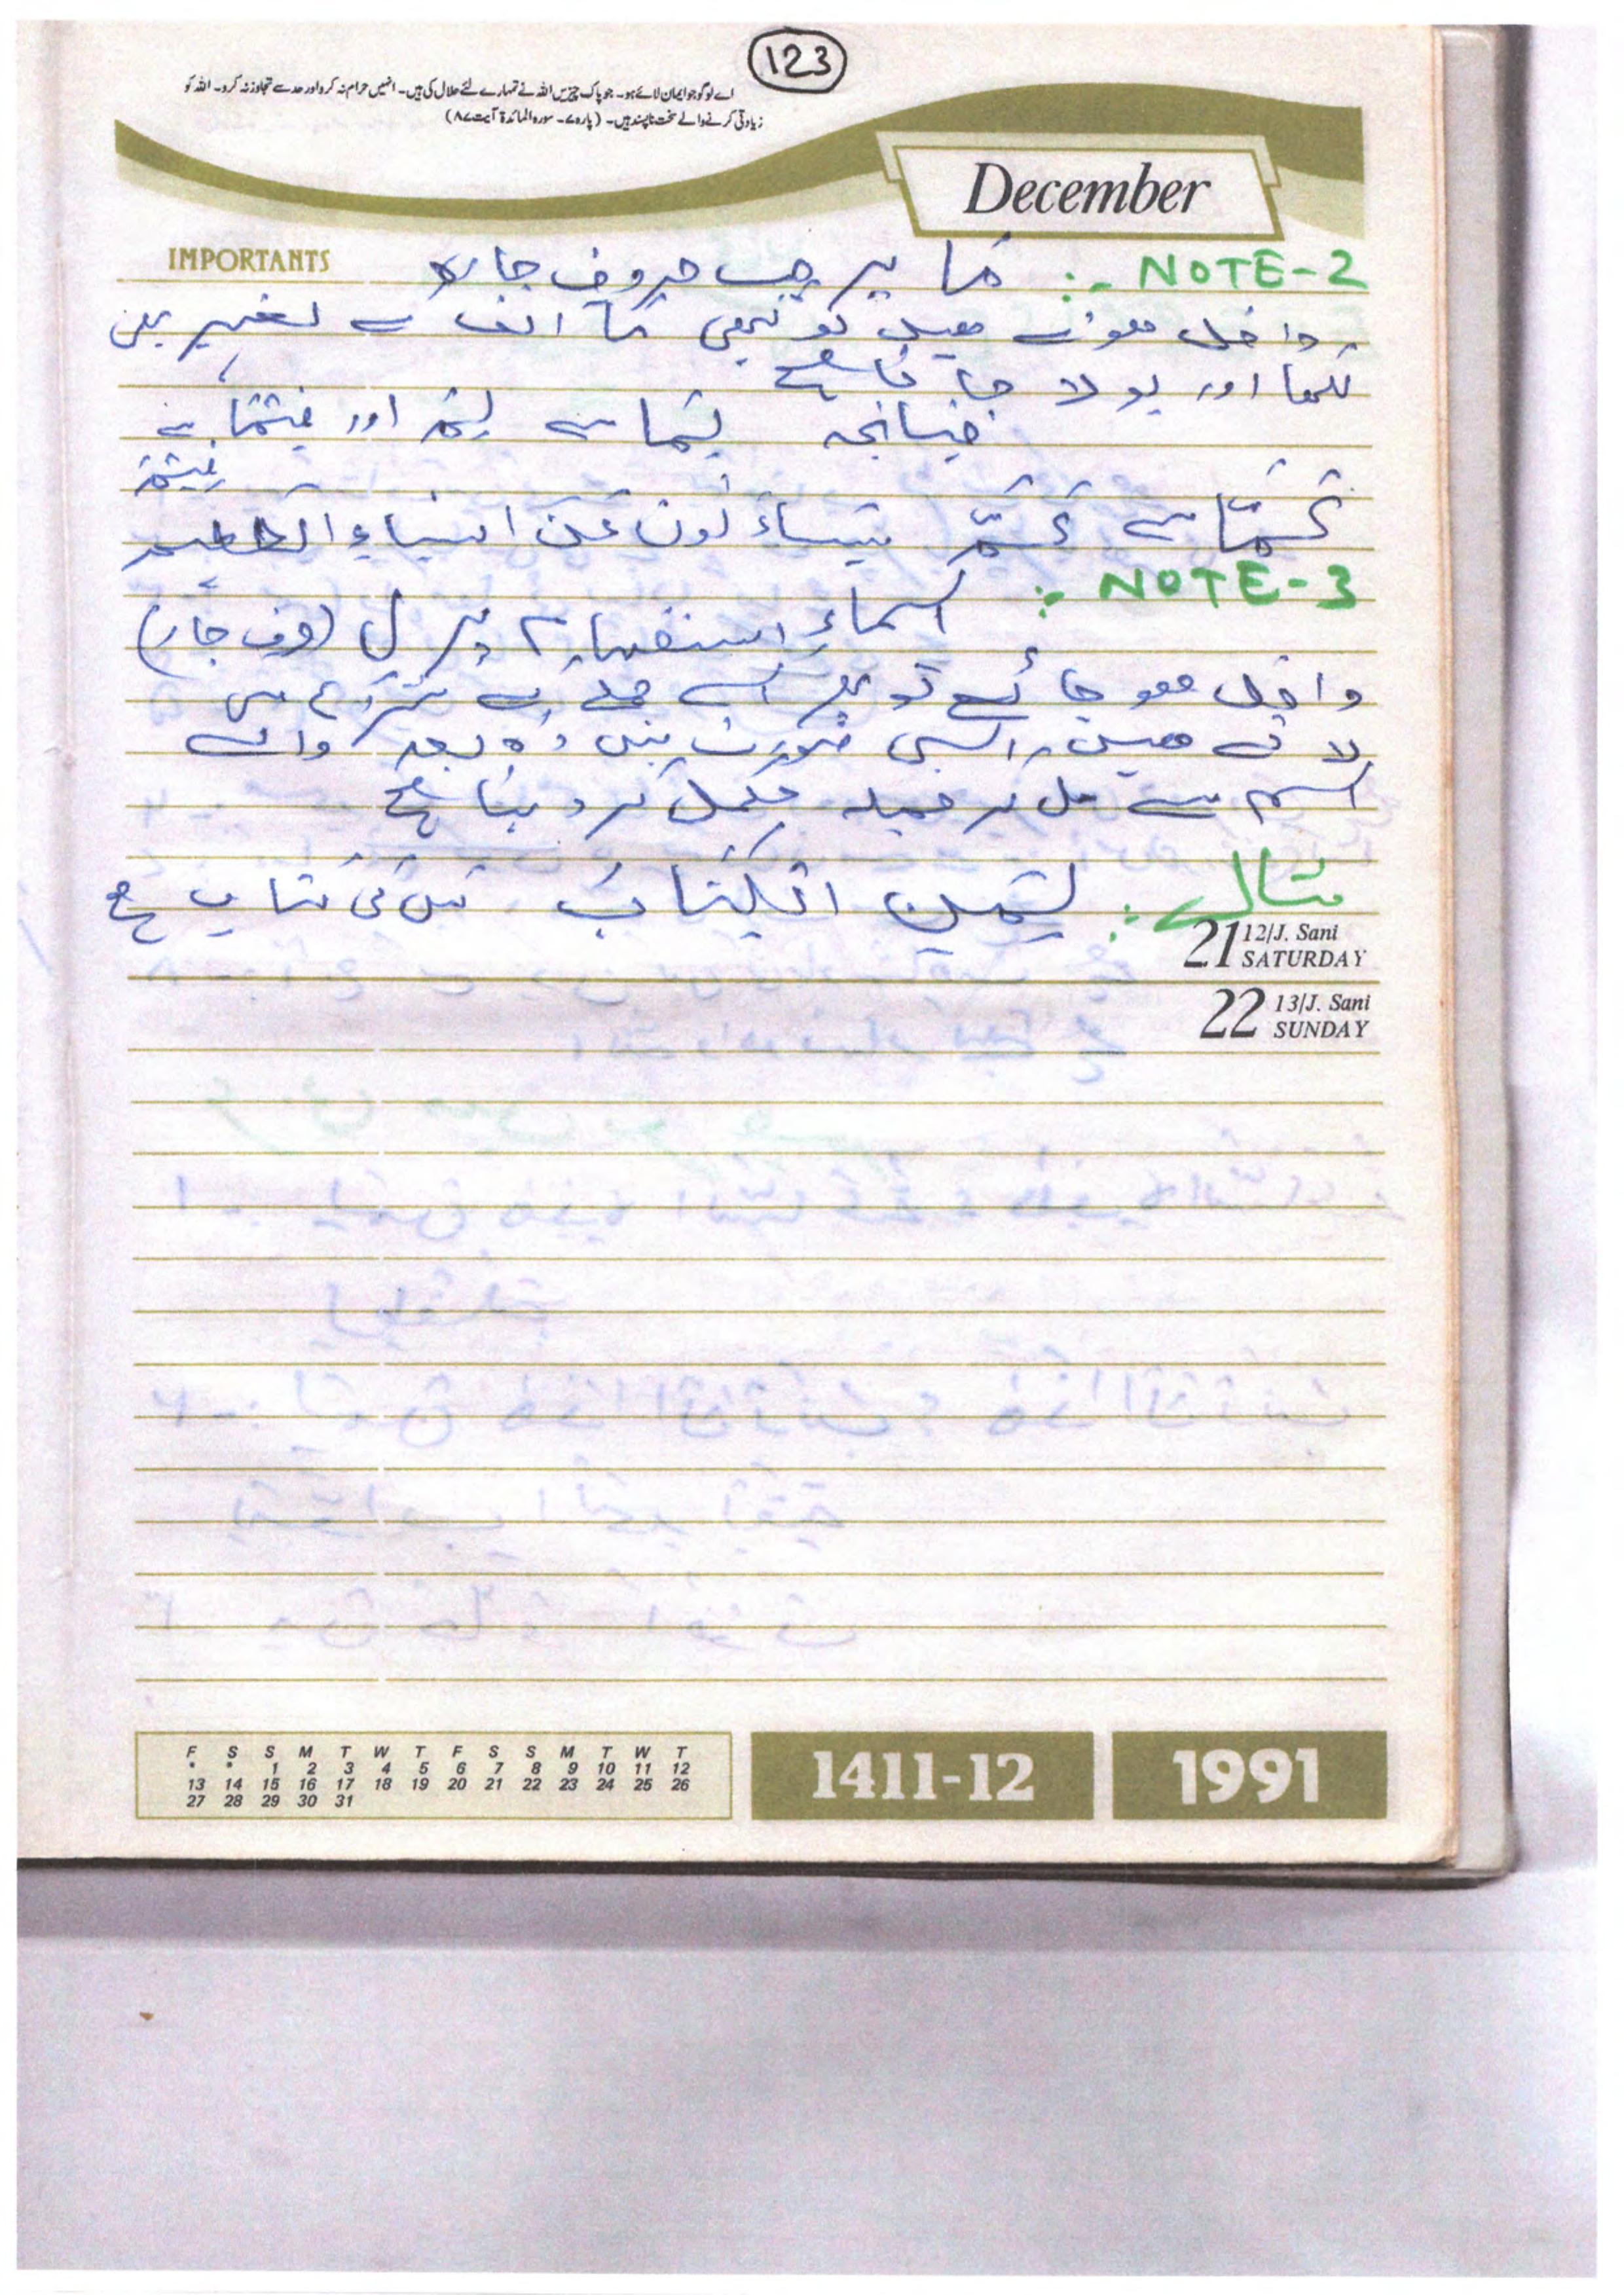 123
اے لوگو جو ایمان لائے ہو۔ جو پاک چیزیں اللہ نے تمہارے لئے حلال کی ہیں۔ انھیں حرام نہ کرو اور حد سے تجاوز نہ کرو۔ اللہ کو
زیادتی کرنے والے سخت ناپسند ہیں۔ (پارہ ۷۔ سورہ المائدۃ آیت ۸۷)
December
IMPORTANTS
NOTE-2 :- مَا پر جب حروف جارہ
داخل ہوتے ہیں تو کبھی مَا الف کے بغیر بھی
لکھا اور بولا جاتا ہے
چنانچہ لِمَا سے لِمَ اور فِيْمَا سے
فِيْمَ
عَمَّا سے عَمَّ يتساءلون عن النباءِ العظيم
NOTE-3 :- اسماءِ استفہام پر لِ (حرف جار)
داخل ہو جائے تو پھر اسے جملے کے شروع میں
لاتے ہیں، ایسی صورت میں وہ بعد والے
اسم سے مل کر جملہ مکمل کر دیتا ہے
مثال :- لِمَنِ الْكِتَابُ کس کی کتاب ہے
21 12/J. Sani SATURDAY
22 13/J. Sani SUNDAY
F S S M T W T F S S M T W T
* * 1 2 3 4 5 6 7 8 9 10 11 12
13 14 15 16 17 18 19 20 21 22 23 24 25 26
27 28 29 30 31
1411-12
1991